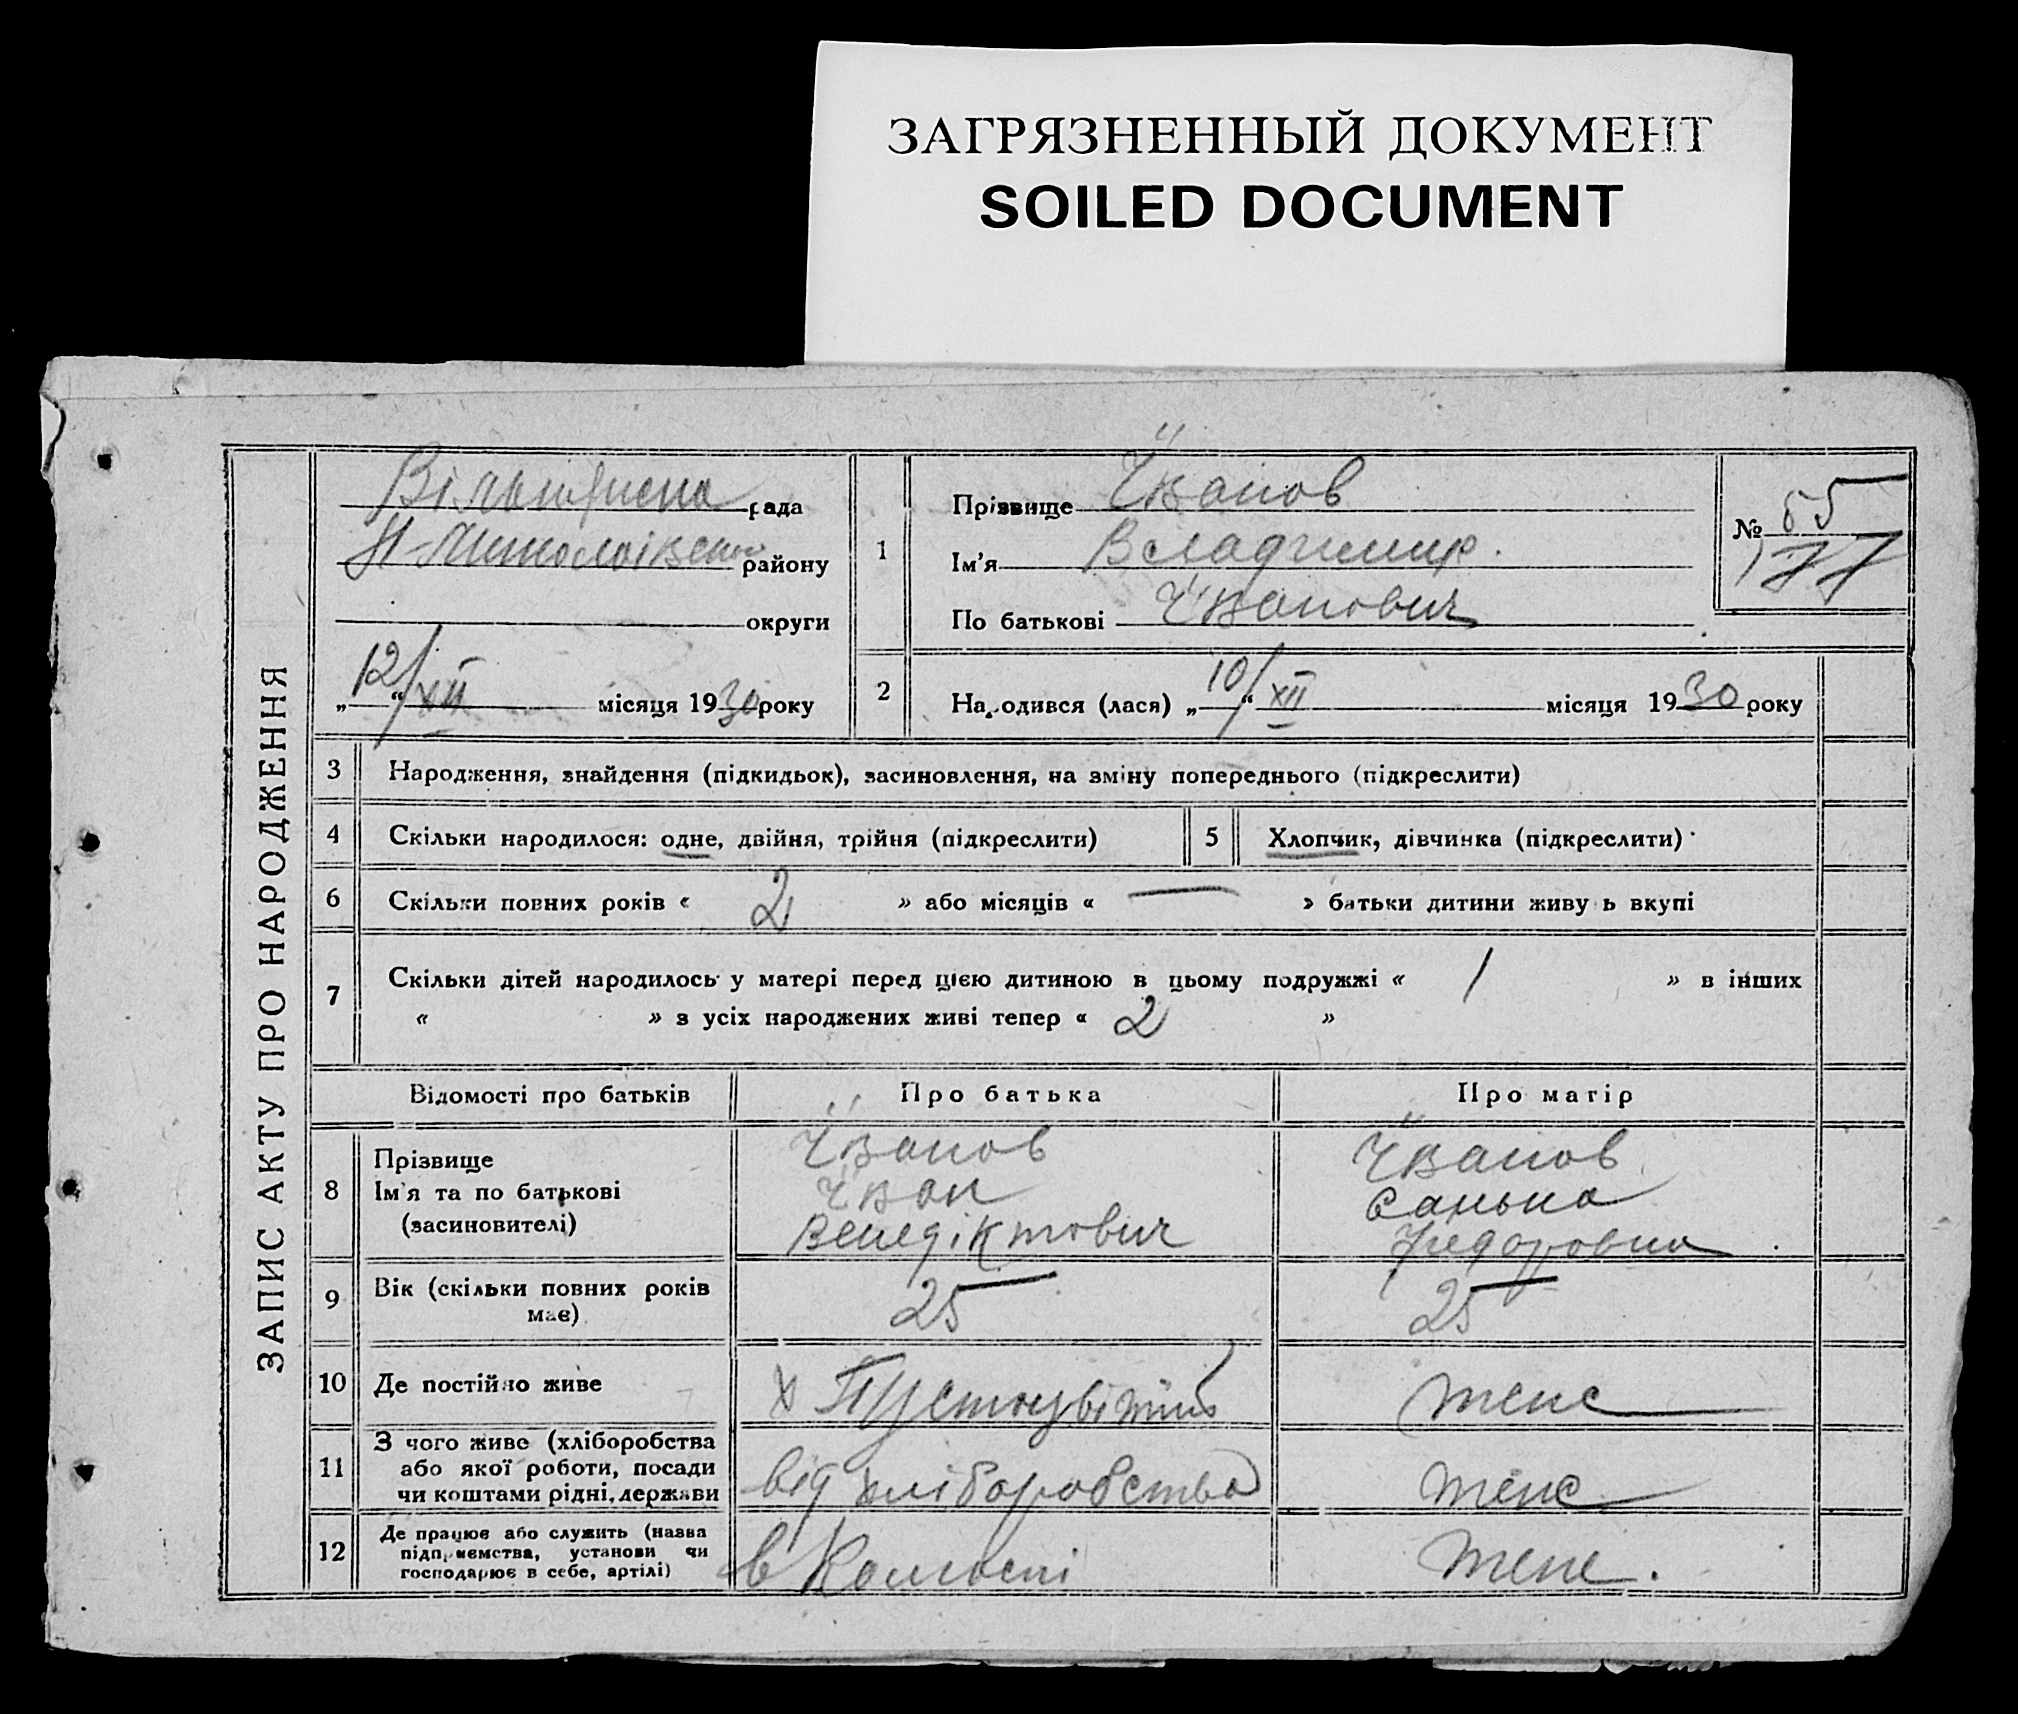 ЗАГРЯЗНЕННЫЙ ДОКУМЕНТ
SOILED DOCUMENT
ЗАПИС АКТУ ПРО НАРОДЖЕННЯ
рада
району
округи
„12“/XII місяця 1930 року
1
Прізвище Іванов
Ім'я Владимир.
По батькові Іванович
№ 65
77
2
Народився (лася) „10“/XII місяця 1930 року
3 Народження, знайдення (підкидьок), засиновлення, на зміну попереднього (підкреслити)
4 Скільки народилося: одне, двійня, трійня (підкреслити)
5 Хлопчик, дівчинка (підкреслити)
6 Скільки повних років « 2 » або місяців « — » батьки дитини живуть вкупі
7 Скільки дітей народилось у матері перед цією дитиною в цьому подружжі « 1 » в інших
« » з усіх народжених живі тепер « 2 »
Відомості про батьків Про батька Про матір
8 Прізвище Іванов Іванов
Ім'я та по батькові Іван Санька
(засиновителі) Венедіктович Федоровна
9 Вік (скільки повних років має) 25 25
10 Де постійно живе х тене
11 З чого живе (хліборобства
або якої роботи, посади
чи коштами рідні, держави від хліборобства тене
12 Де працює або служить (назва
підприємства, установи чи
господарює в себе, артілі) в тене.